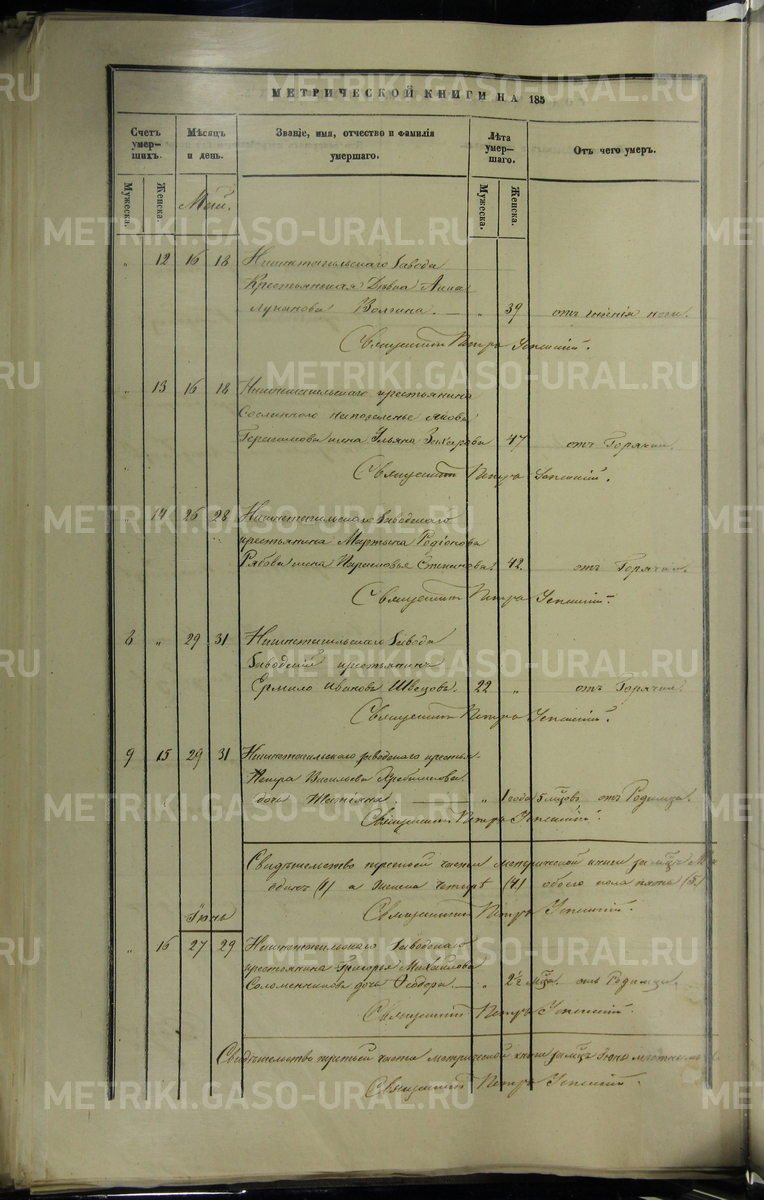 МЕТРИЧЕСКОЙ КНИГИ НА 185
Счетъ умер-шихъ. Мѣсяцъ и день. Званіе, имя, отчество и фамилія умершаго. Лѣта умер-шаго. Отъ чего умеръ.
Мужеска. Женска. Мужеска. Женска.
Май.
" 12 16 18 Нижнетагильскаго завода
Крестьянская Дѣвка Анна
Волгина. — " 39 отъ ноги.
Священникъ Петръ Успенскій.
" 13 16 18 Нижнетагильскаго крестьянина
Якова
Герасимова жена Ульяна Захарова 47 отъ Горячки.
Священникъ Петръ Успенскій.
" 14 26 28 Нижнетагильскаго Заводскаго
крестьянина Мартына Родіонова
Рябова жена 42. отъ Горячки.
Священникъ Петръ Успенскій.
8 " 29 31 Нижнетагильскаго завода
Заводскій крестьянинъ
Ермило Ивановъ Швецовъ. 22 " отъ Горячки.
Священникъ Петръ Успенскій.
9 15 29 31 Нижнетагильскаго заводскаго крестья-
Петра Васильева
дочь " 1 года 5 мѣсяцовъ отъ Родимца.
Священникъ Петръ Успенскій.
Свидѣтельство третьей части метрической книги за мѣсяцъ
а Женска четыре (4) обоего пола пять (5)
Священникъ Петръ Успенскій.
Іюнь
" 16 27 29 Нижнетагильскаго Заводскаго
крестьянина Григорья Михайлова
Соломенникова дочь Ѳеодора. — " отъ Родимца.
Священникъ Петръ Успенскій.
Свидѣтельство третьей части метрической книги за мѣсяцъ Іюнь
Священникъ Петръ Успенскій.
METRIKI.GASO-URAL.RU